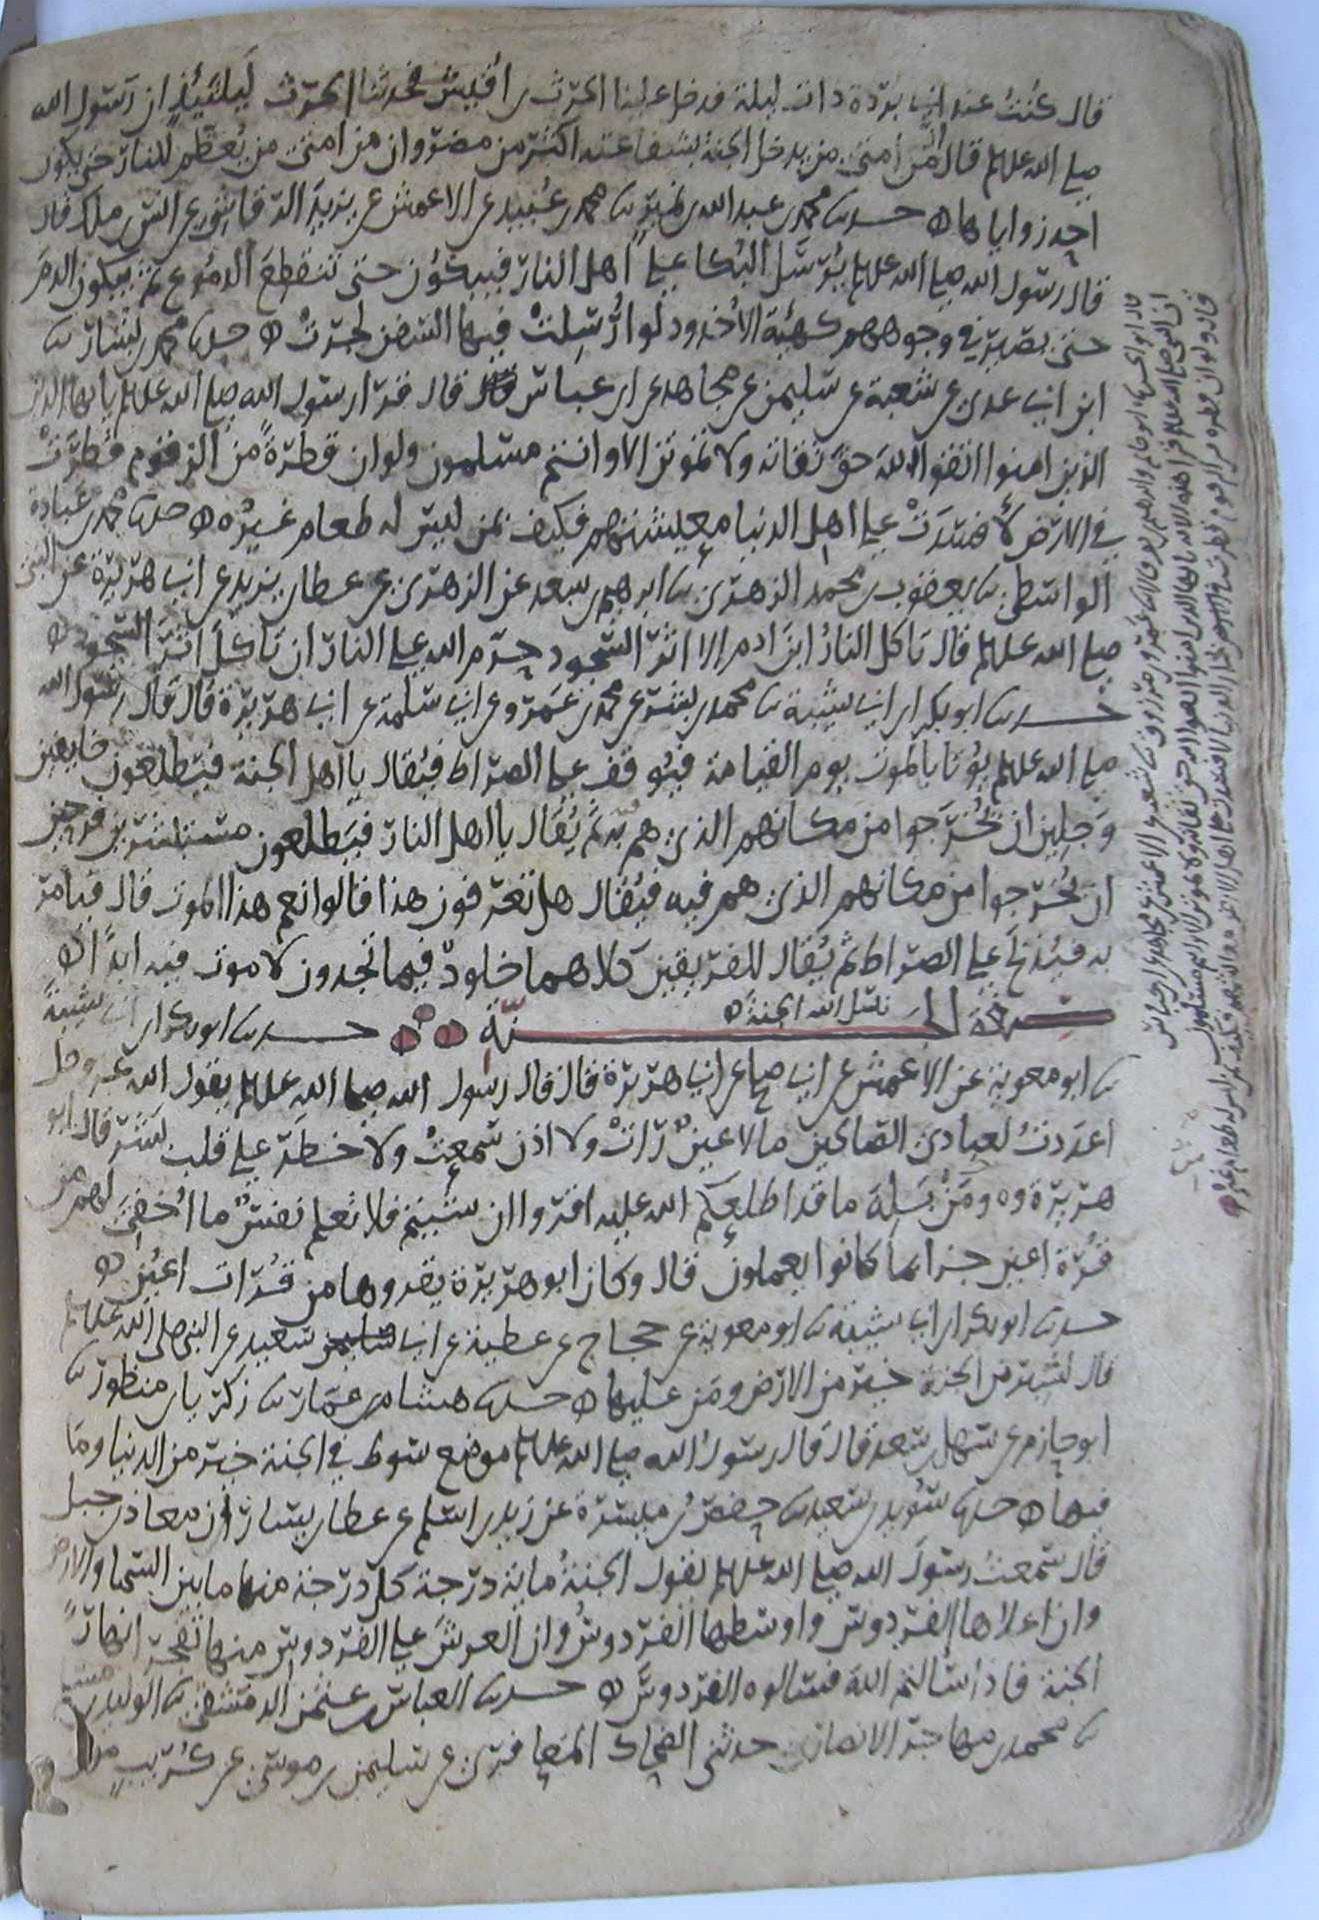 قال كُنتُ عند ابي بردة ذات ليلة فدخل علينا الحرث بن اُقيش فحدثنا الحرث لَيلتَئِذٍ ان رسول الله
صلى الله علىه وسلم قال اِنَّ من اُمتي من يدخل الجنة بشفاعته اكثر من مضر وان من امتي من يُعظم للنار حتى يكون
احد زواياها ه حدثنا محمد بن عبد الله بن نمير ثنا محمد بن عُبيد عن الاعمش عن يزيد الرقاشي عن انس بن ملك قال
قال رسول الله صلى الله علىه وسلم يُرسَل البُكا على اهل النار فيبكون حتى تنقطع الدموع ثم يبكون الدمَ
حتى يصير في وجوههم كهيئة الاُخدود لو اُرْسِلتْ فيها السفن لجرتْ ه حدثنا محمد بن بشار ثنا
ابن ابي عدي عن شعبة عن سليمن عن مجاهد عن ابن عباس قال قرا رسول الله صلى الله علىه وسلم يا ايها الذين
الذين امنوا اتقوا الله حقَّ تقاته ولا تموتن الا وانتم مسلمون ولو ان قطرةً من الزقوم قُطِرَتْ
في الارض لأفسَدَتْ على اهل الدنيا معيشتهم فكيف بمن ليس له طعام غيرُه ه حدثنا محمد بن عبادة
الواسطي ثنا يعقوب بن محمد الزهري ثنا ابرهيم بن سعد عن الزهري عن عطا بن يزيد عن ابي هريرة عن النبي
صلى الله علىه وسلم قال تاكل النارُ ابنَ ادم الا اثر السجود حرم الله على النار ان تاكلَ اثرَ السجود ه
حدثنا ابو بكر ابن ابي شيبة ثنا محمد بن بشر عن محمد بن عَمرو عن ابي سلمة عن ابي هريرة قال قال رسول الله
صلى الله علىه وسلم يؤتا بالموت يوم القيامة فيُوقف على الصراط فيُقال يا اهل الجنة فيطلعون خايفين
وَجِلين ان يُخرَجوا من مكانهم الذي هم فيه ثم يُقال يا اهل النار فيَطلعون مستبشرين فرحين
ان يُخرجوا من مكانهم الذي هم فيه فيُقال هل تعرفون هذا قالوا نعم هذا الموت قال فيامر
به فيُذبَح على الصراط ثم يُقال للفريقين كلاهما خلودٌ فيما تجدون لا موت فيه ابداً ه
صفة الجنة نسل الله الجنة ه حدثنا ابو بكر ابن ابي شيبة
ثنا ابو معوية عن الاعمش عن ابي صالح عن ابي هريرة قال قال رسول الله صلى الله علىه وسلم يقول الله عز وجل
اعددتُ لعبادي الصالحين ما لا عينٌ رَاتْ ولا اذن سَمِعتْ ولا خطَرَ على قلب بَشر قال ابو
هريرة وه ومَنْ بَلِهَ ما قد اطلعكم الله عليه اقروا ان شيتم فلا تعلم نفسٌ ما اُخفيَ لهم من
قُرّة اعين جزا بما كانوا يعملون قال وكان ابو هريرة يقروها من قُرّات اعيُن ه
حدثنا ابو بكر ابن ابي شيبة ثنا ابو معوية عن حجاج عن عطية عن ابي سعيد عن النبي صلى الله علىه وسلم
قال لشبر من الجنة خير من الارض ومَن عليها ه حدثنا هشام بن عمار ثنا زكريا بن منظور ثنا
ابو حازم عن سهل بن سعد قال قال رسول الله صلى الله علىه وسلم موضع سَوط في الجنة خير من الدنيا ومَا
فيها ه حدثنا سُويد بن سعيد ثنا حفص بن ميسرة عن زيد بن اسلم عن عطا بن يسار اَن معاذ بن جبل
قال سمعتُ رسولَ الله صلى الله علىه وسلم يقول الجنةُ ماية درجة كل درجة منها ما بين السما والارض
وان اعلاها الفردوس واوسطها الفردوسُ وان العرشَ على الفردوس منها تُفجر انهارُ
الجنة فاذا سَالتم اللهَ فسَالوه الفردوسَ ه حدثنا العباس بن عثمن الدمشقي ثنا الوليد بن مسلم
ثنا محمد بن مهاجر الانصاري حدثني الضحاك المعافري عن سليمن بن موسى عن كُريبٍ مولى
قال ابو الحسن ثنا ابو حاتم وابرهيم بن نصر قالا ثنا عمرو بن مرزوق ثنا شعبة عن الاعمش عن مجاهد عن ابن عباس
ان النبي صلى الله علىه وسلم قرا هذه الاية يا ايها الذين امنوا اتقوا الله حق تقاته ولا تموتن الا وانتم مسلمون
قال ولو ان قطرة من الزقوم قطرت في الدنيا لافسدت على اهل الارض معايشهم فكيف بمن ليس له طعام غيره